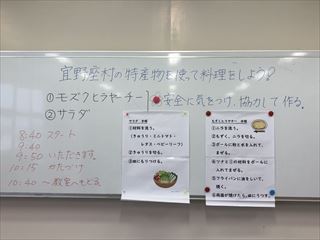 宜野座村の特産物を使って料理をしよう?
①モズクヒラヤーチー
②サラダ
安全に気をつけ、協力して作る。
8:40 スタート
9:40
9:50 いただきます。
10:15 かたづけ
10:40 〜教室へもどる
サラダ 手順
①材料を洗う。
(きゅうり・ミニトマト・
レタス・ベビーリーフ)
②きゅうりを切る。
③皿にもりつける。
もずくヒラヤーチー 手順
①ニラを洗う。
②もずく、ニラを切る。
③ボールに粉と水を入れて、
まぜる。
④ツナと②の材料をボールに
入れてまぜる。
⑤フライパンに油をしいて、
焼く。
⑥両面が焼けたら、皿にうつす。